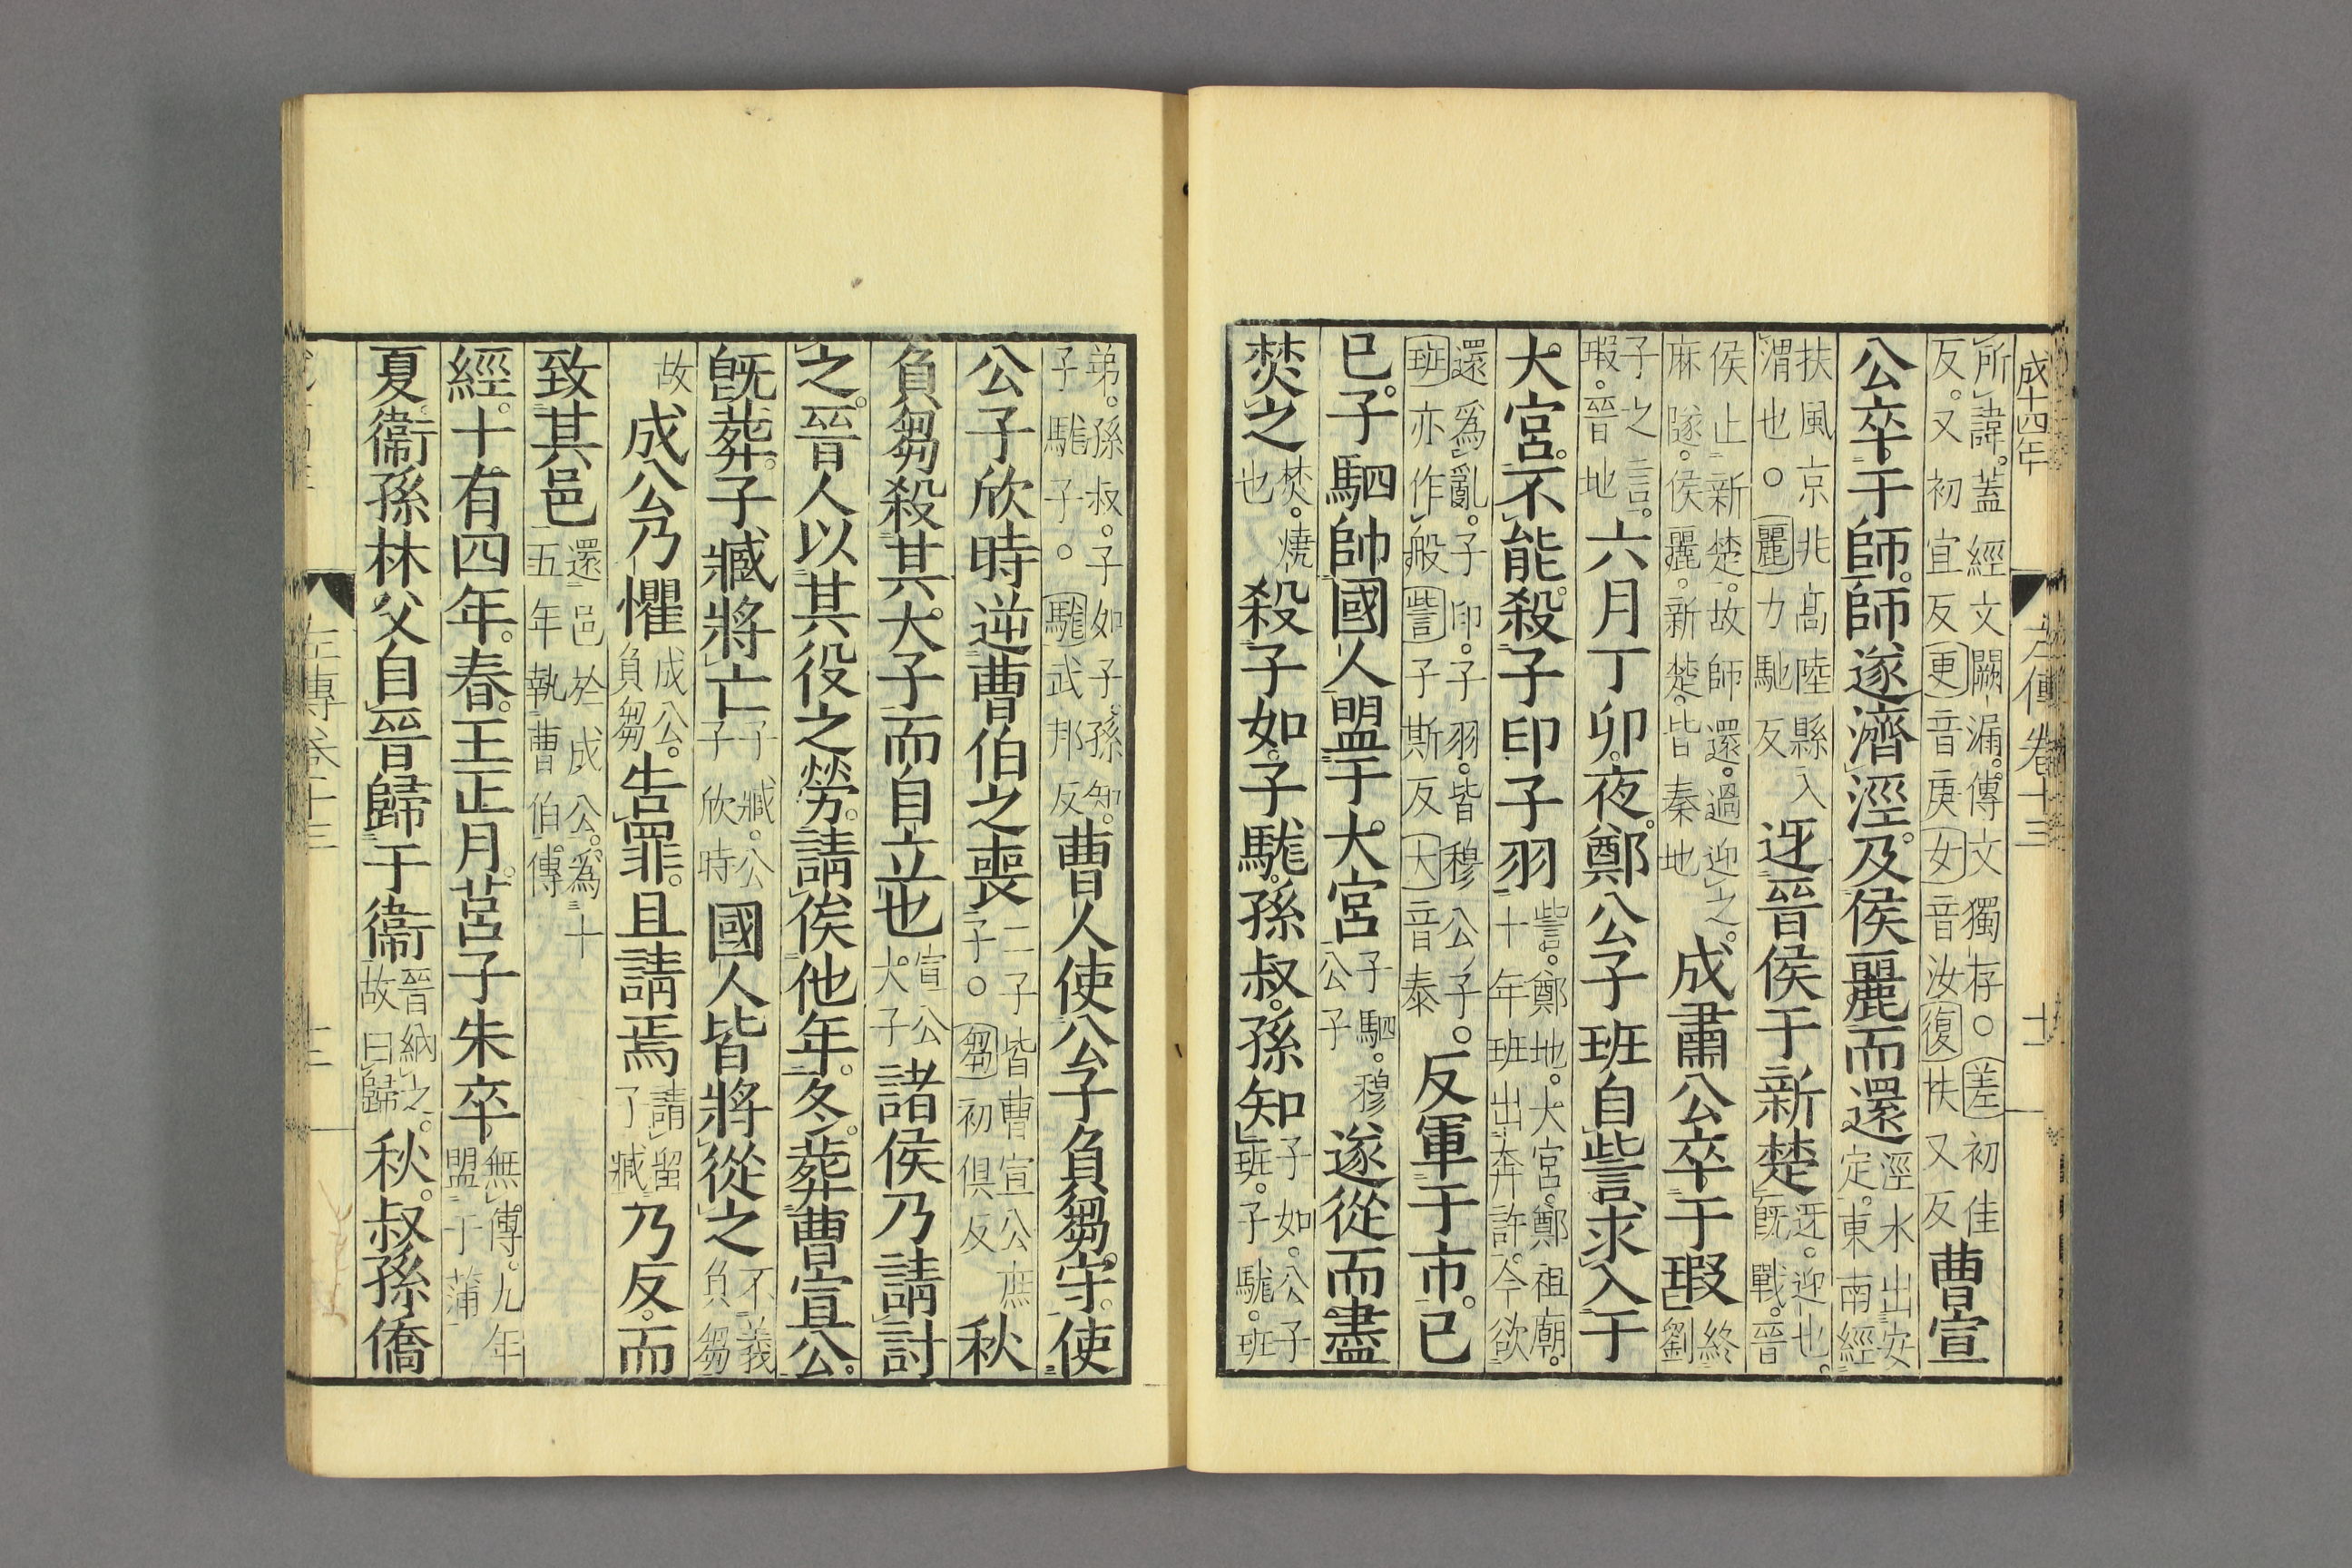 成十四年 左傳卷十三 十一
所諱。蓋經文闕漏。傳文獨存○差初佳
反。又初宜反更音庚女音汝復扶又反
曹宣
公卒于師。師遂濟涇。及侯麗而還
涇水出安
定。東南經
扶風京兆高陸縣入
渭也○麗力馳反
迓晉侯于新楚
迓。迎也。
既戰。晉
侯止新楚。故師還。過迎之。
麻隧。侯麗。新楚。皆秦地
成肅公卒于瑕
終
劉
子之言。
瑕。晉地
六月丁卯。夜。鄭公子班自訾求入于
大宮。不能。殺子印子羽
訾。鄭地。大宮。鄭祖廟。
十年班出奔許。今欲
還爲亂。子印。子羽。皆穆公子。○
班亦作般訾子斯反大音泰
反軍于市。已
巳。子駟帥國人盟于大宮
子駟。穆
公子
遂從而盡
焚之
焚。燒
也
殺子如。子駹。孫叔。孫知
子如。公子
班。子駹。班
弟。孫叔。子如子。孫知。
子駹子。○駹武邦反
曹人使公子負芻守。使
公子欣時逆曹伯之喪
二子皆曹宣公庶
子。○芻初俱反
秋
負芻殺其大子而自立也
宣公
大子
諸侯乃請討
之。晉人以其役之勞。請俟他年。冬。葬曹宣公。
既葬。子臧將亡
子臧。公
子欣時
國人皆將從之
不義
負芻
故
成公乃懼
成公。
負芻
告罪。且請焉
請留
子臧
乃反。而
致其邑
還邑於成公。爲十
五年執曹伯傳
經。十有四年。春。王正月。莒子朱卒
無傳。九年
盟于蒲
夏。衞孫林父自晉歸于衞
晉納之。
故曰歸
秋。叔孫僑
左傳卷十三 十二